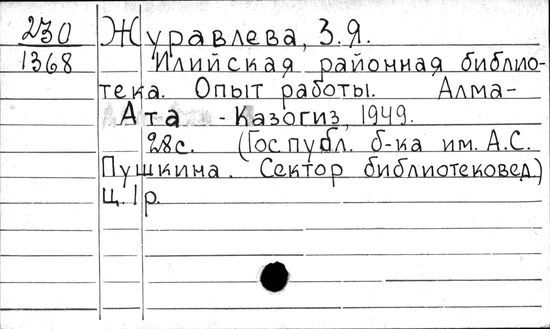 230
1368
Журавлева, З.Я.
Илийская районная библио-
тека. Опыт работы. Алма-
Ата - Казогиз, 1949.
28с. (Гос публ. б-ка им. А.С.
Пушкина. Сектор библиотековед)
Ц. 1р.